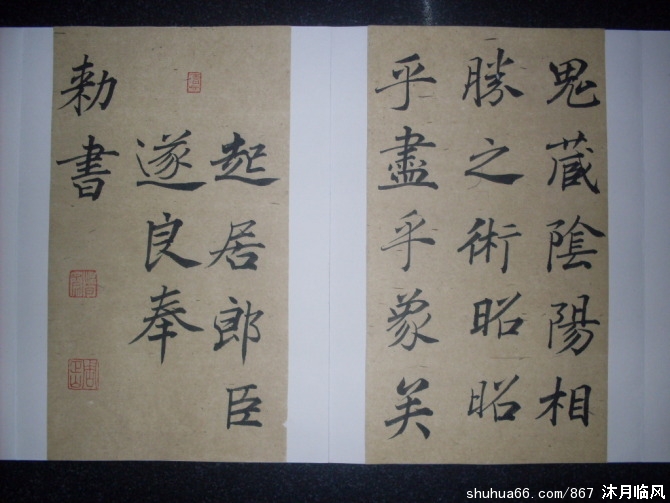 鬼藏陰陽相
勝之術昭昭
乎盡乎象矣
起居郎臣
遂良奉
勅書
shuhua66.com/867 沐月临风